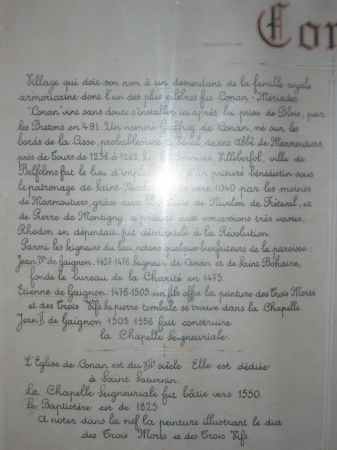 Con
Village qui doit son nom à un descendant de la famille royale
armoricaine dont l'un des plus célèbres fut Conan Mériadec
Conan vint sans doute s'installer ici après la prise de Blois, par
les Bretons en 491. Un nommé Geoffroy de Conan, né sur les
bords de la Cisse, probablement à Conan, devint Abbé de Marmoutiers
près de Tours de 1236 à 1262. Villiberfol, ville de
Belfolms fut le lieu d'implantation d'un prieuré bénédictin sous
le patronage de Saint vers 1040 par les moines
de Marmoutiers, grâce aux de Nivelon de Fréteval, et
de Pierre de Montigny, à la suite aux concessions très variées.
Rhodon en dépendait, fut démantelé à la Révolution.
Parmi les seigneurs du lieu, notons quelques bienfaiteurs de la paroisse
Jean 1er de Gaignon, 1457-1476 seigneur de Conan et de Saint Bohaire,
fonde le bureau de la Charité en 1475.
Etienne de Gaignon: 1476-1505 son fils offre la peinture des Trois Morts
et des Trois Vifs. Sa pierre tombale se trouve dans la Chapelle.
Jean II de Gaignon 1505 1556 fait construire
la Chapelle Seigneuriale.
L'Eglise de Conan est du XIIe siècle. Elle est dédiée
à Saint Saturnin.
La Chapelle Seigneuriale fut bâtie vers 1550.
Le Baptistère est de 1825
A noter dans la nef la peinture illustrant le dict
des Trois Morts et des Trois Vifs.